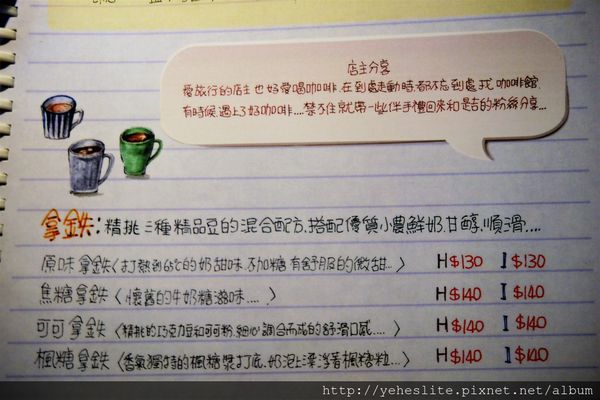 店主分享
愛旅行的店主也好愛喝咖啡.在到處走動時.都不忘到處找咖啡館.
有時候遇上了好咖啡....禁不住就帶一些伴手禮回來和是吉的粉絲分享...
拿鉄:精挑三種精品豆的混合配方.搭配優質小農鮮奶.甘醇.順滑....
原味拿鉄〈打熱到65℃的奶甜味.不加糖有舒服的微甜...〉 H$130 I$130
焦糖拿鉄〈懷舊的牛奶糖滋味....〉 H$140 I$140
可可拿鉄〈精挑的巧克力豆和可可粉.細心調合而成的舒滑口感....〉 H$140 I$140
楓糖拿鉄〈香氣獨特的楓糖漿打底.奶泡上漂浮著楓糖粒...〉 H$140 I$140
http://yeheslite.pixnet.net/album